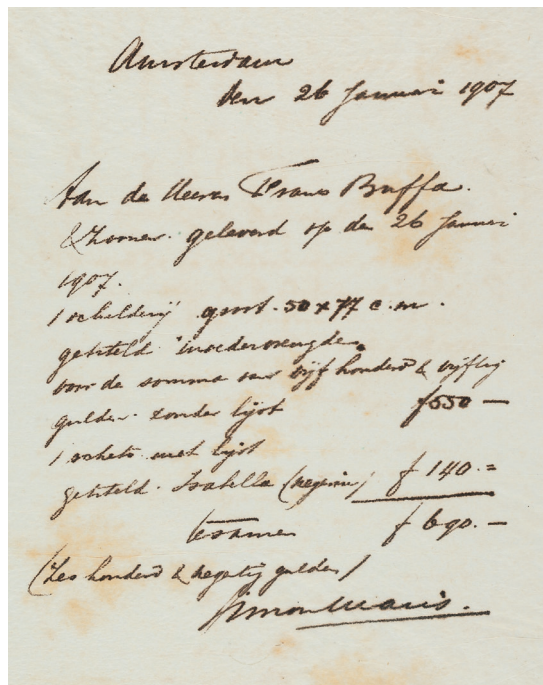 Amsterdam
den 26 Januari 1907
Aan de Heeren Frans Buffa
& Zoonen. geleverd op den 26 Januari
1907.
1 schilderij groot. 50 x 77 c.m.
getiteld "Moedervreugde"
voor de somma van vijf honderd & vijftig
gulden zonder lijst f550 —
1 schets met lijst
getiteld. Isabella (negerin) f 140.=
tesamen f 690.—
(Zes honderd & negentig gulden)
Simon Maris.